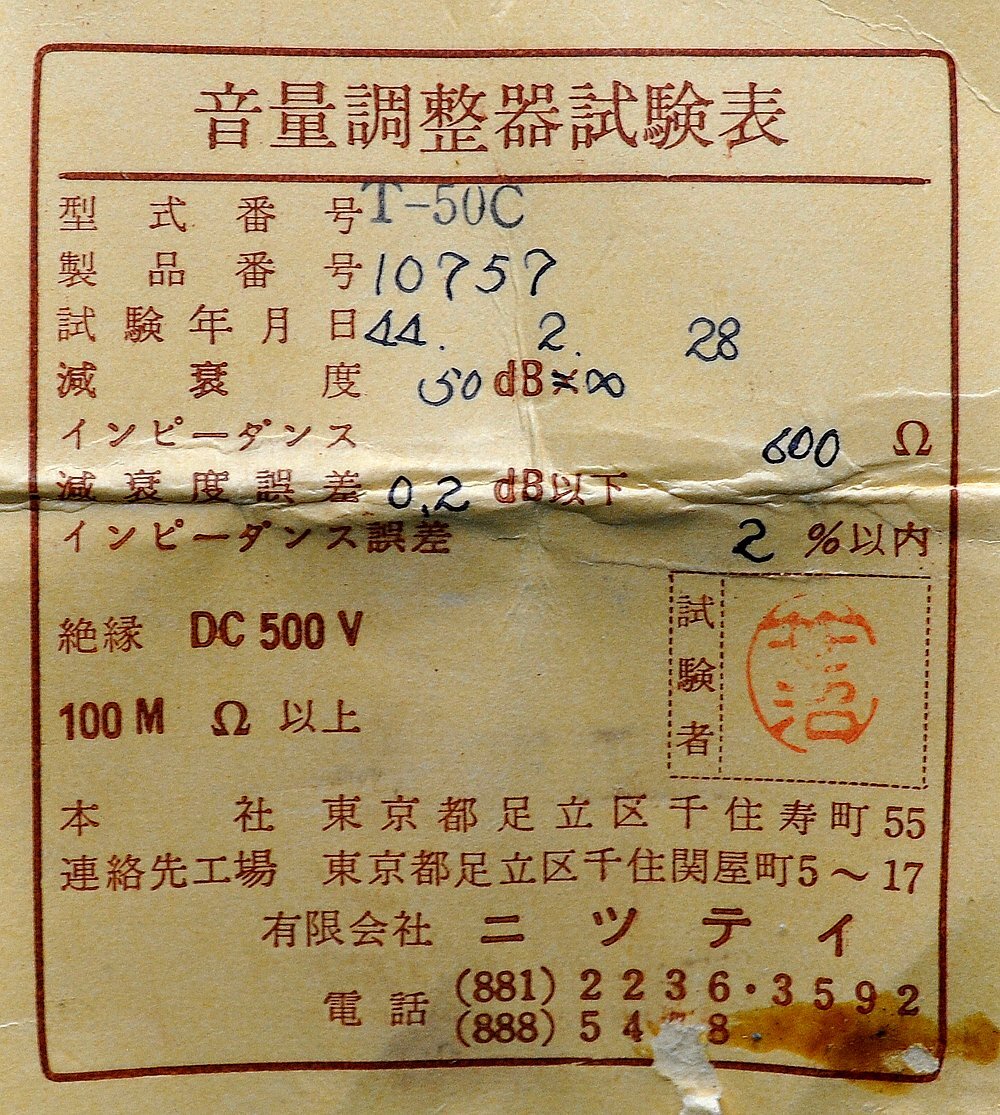 音量調整器試験表
型式番号 T-50C
製品番号 10757
試験年月日 44. 2. 28
減衰度 50 dB ∞
インピーダンス 600 Ω
減衰度誤差 0.2 dB以下
インピーダンス誤差 2 %以内
絶縁 DC 500 V
100 M Ω 以上
試験者
本社 東京都足立区千住寿町 55
連絡先工場 東京都足立区千住関屋町5～17
有限会社 ニツテイ
電話 (881) 2236・3592
(888) 54 8